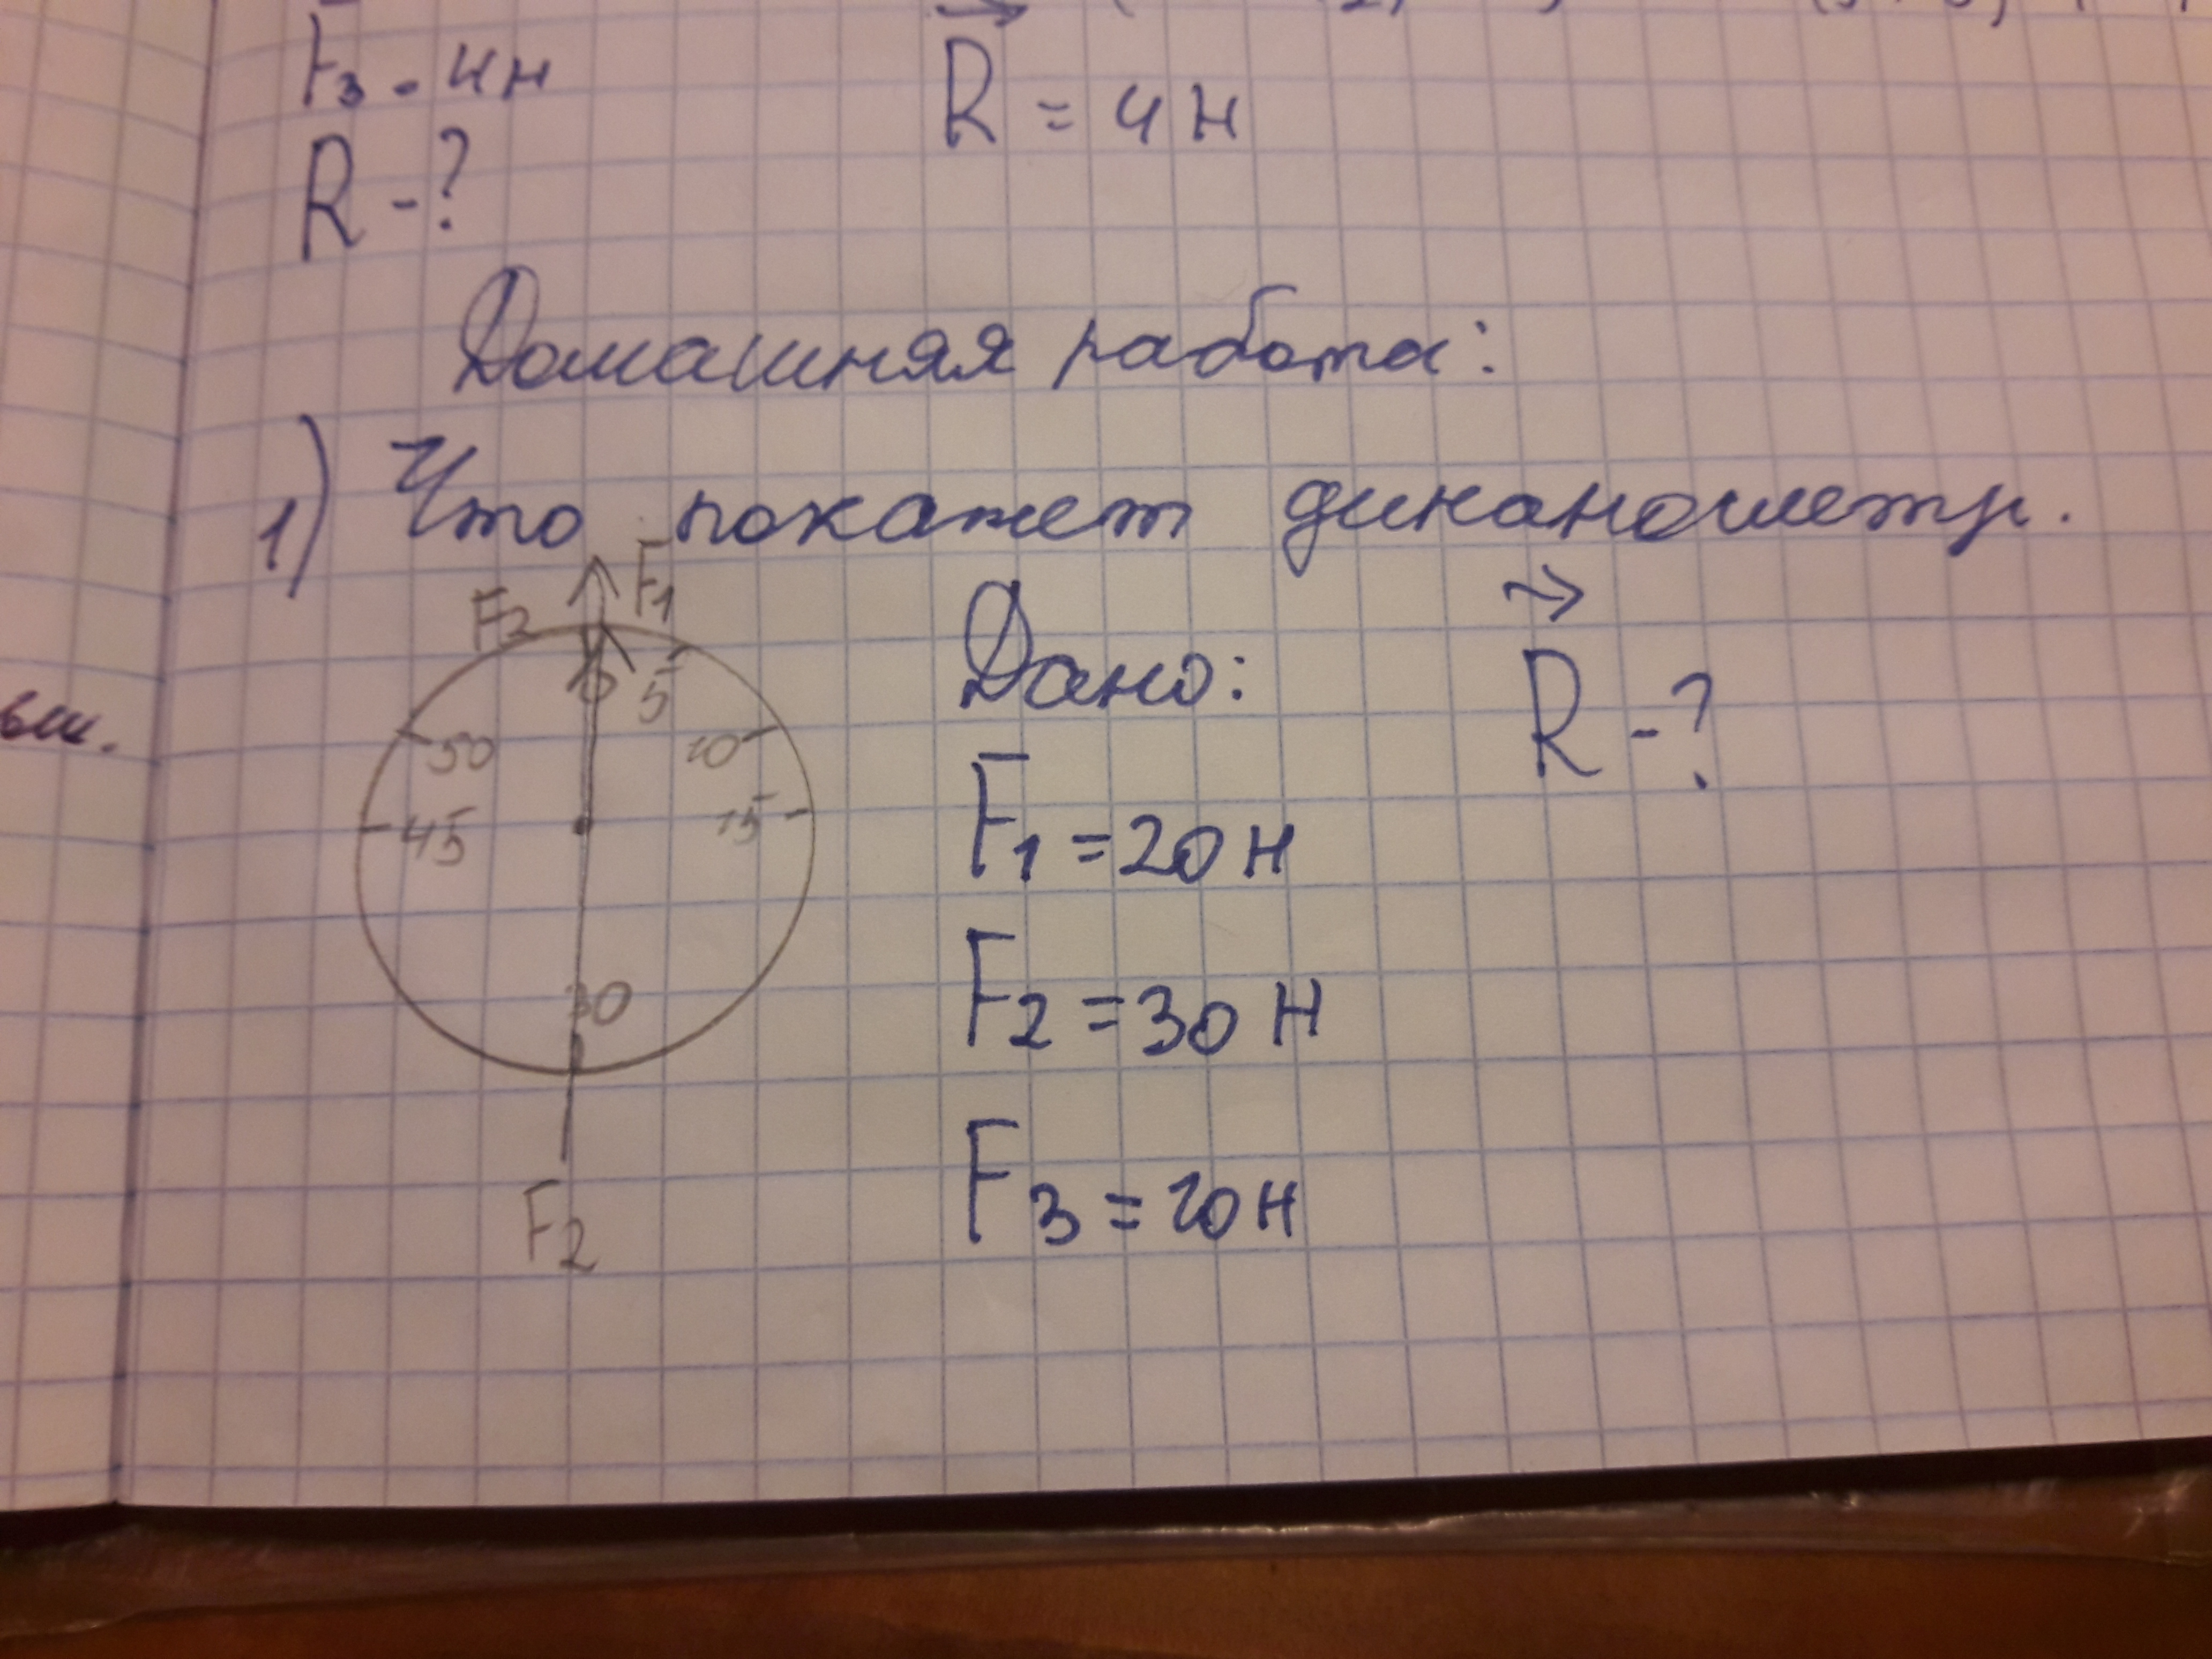 F₃ - 4н
R = 4 н
R - ?
Домашняя работа:
1) Что покажет динанометр.
F₂ F₁
0 5
50 10
45 15
30
F₂
Дано:
F₁ = 20 н
F₂ = 30 н
F₃ = 20 н
R - ?